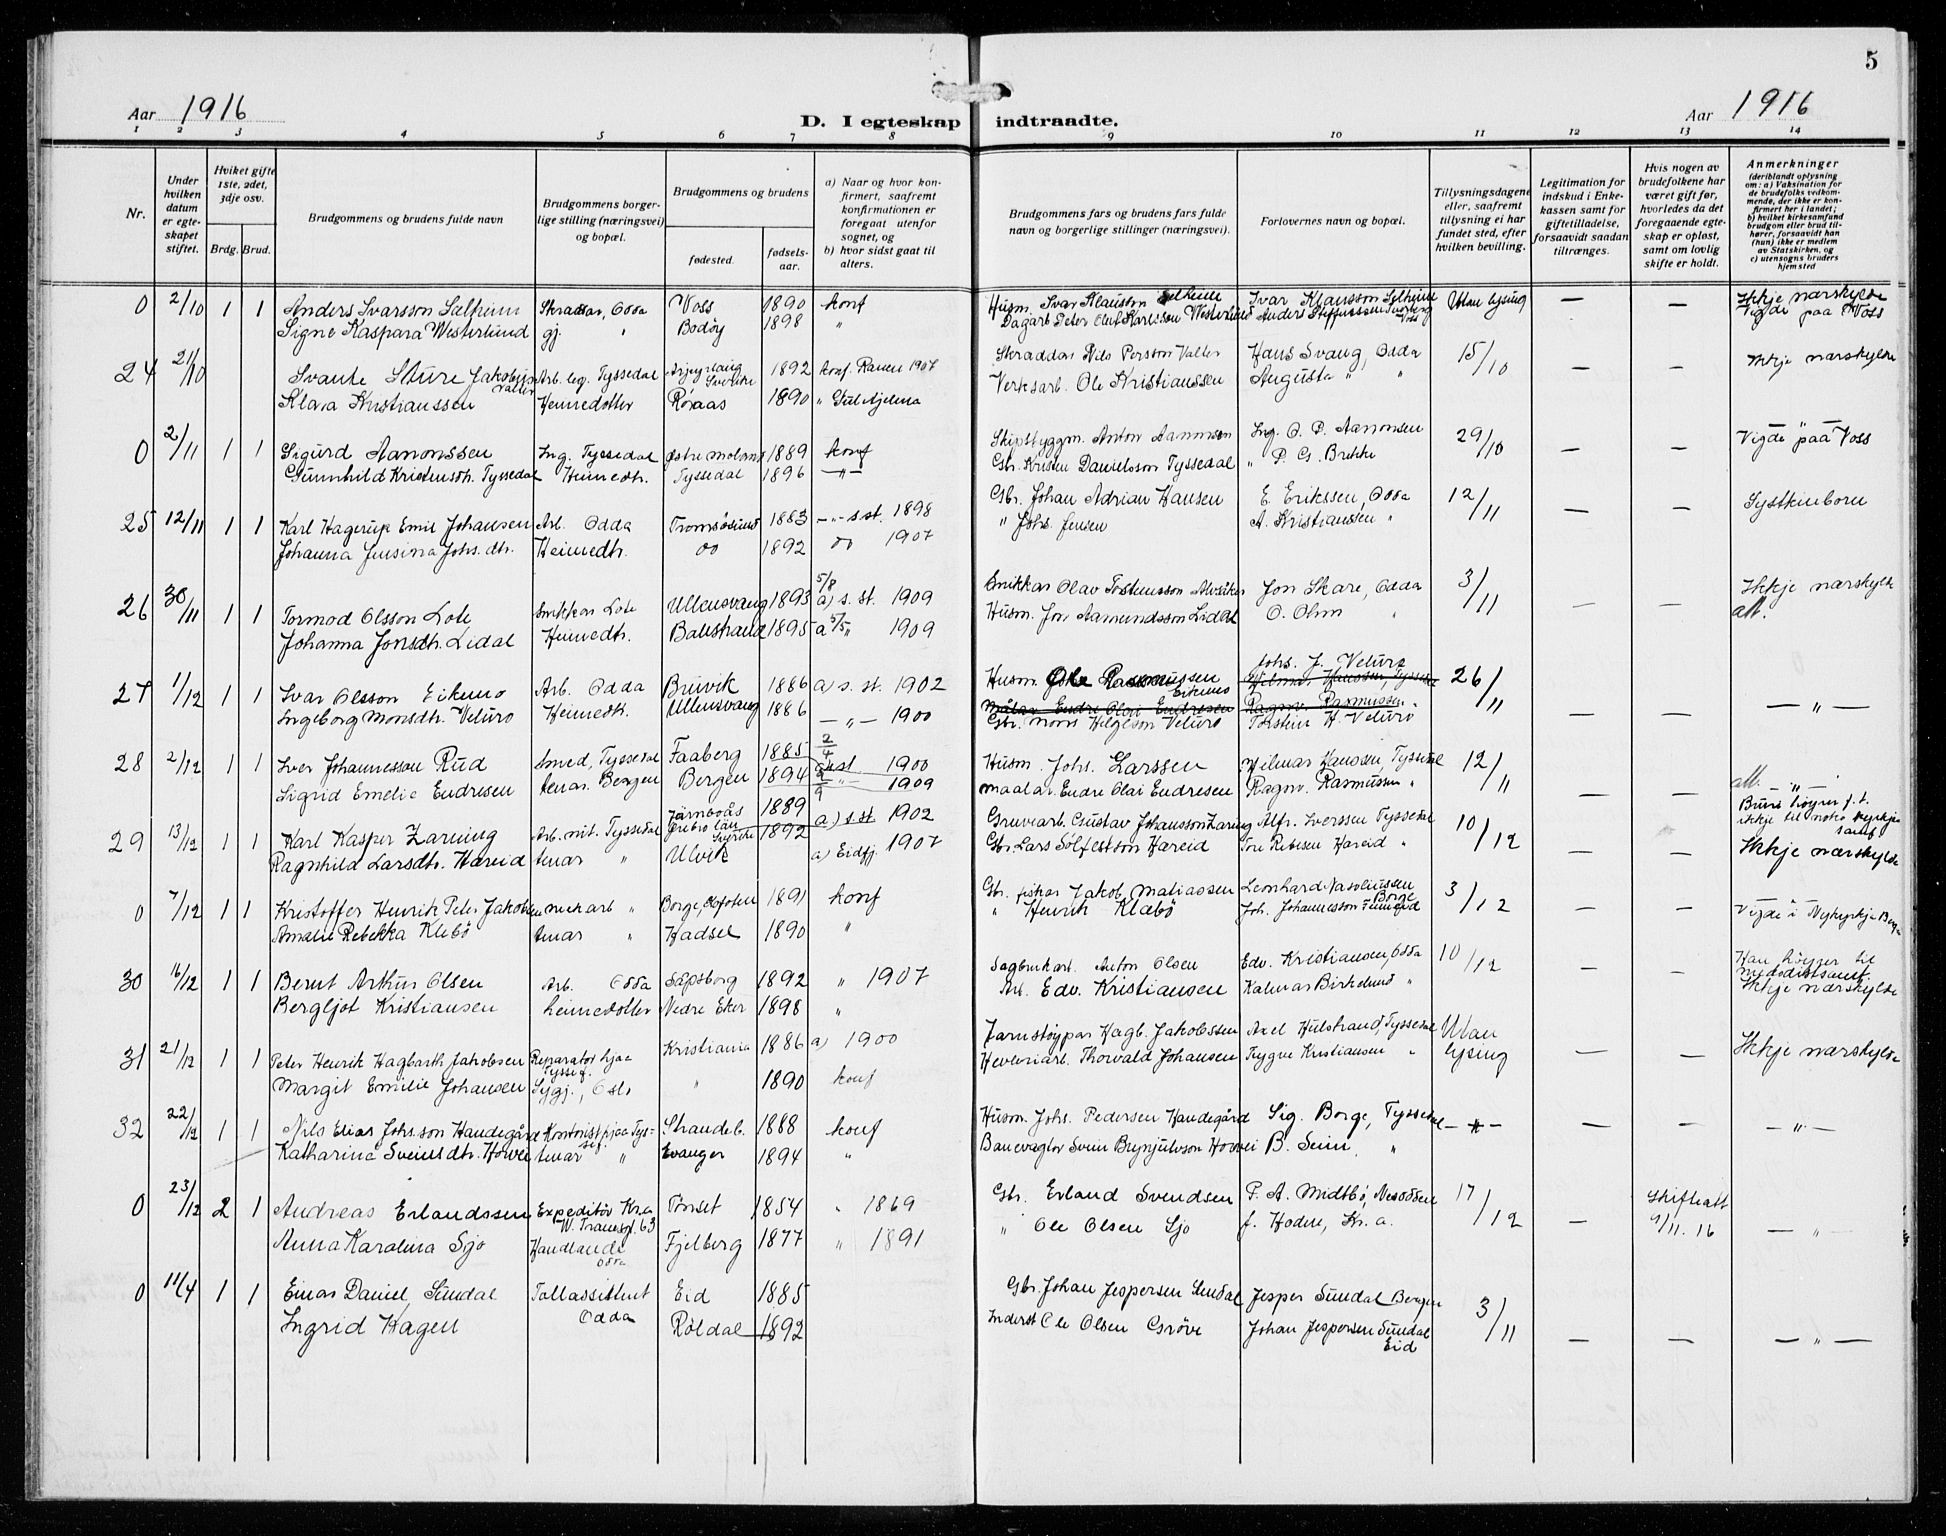 5
Aar 1916
D. I egteskap indtraadte.
Aar 1916
1 2 3 4 5 6 7 8 9 10 11 12 13 14
Nr.
Under hvilken datum er egteskapet stiftet.
Hvilket gifte 1ste, 2det, 3dje osv.
Brdg. Brud.
Brudgommens og brudens fulde navn
Brudgommens borgerlige stilling (næringsvei) og bopæl.
Brudgommens og brudens
fødested.
fødselsaar.
a) Naar og hvor konfirmert, saafremt konfirmationen er foregaat utenfor sognet, og
b) hvor sidst gaat til alters.
Brudgommens fars og brudens fars fulde navn og borgerlige stillinger (næringsvei).
Forlovernes navn og bopæl.
Tillysningsdagene eller, saafremt tillysning ei har fundet sted, efter hvilken bevilling.
Legitimation for indskud i Enkekassen samt for giftetilladelse, forsaavidt saadan tiltrænges.
Hvis nogen av brudefolkene har været gift før, hvorledes da det foregaaende egteskap er opløst, samt om lovlig skifte er holdt.
Anmerkninger
(deriblandt oplysning om: a) Vaksination for de brudefolks vedkommende, der ikke er konfirmert her i landet; b) hvilket kirkesamfund brudgom eller brud tilhører, forsaavidt han (hun) ikke er medlem av Statskirken, og c) utensogns bruders hjemsted
0 2/10 1 1 Anders Ivarsson Selheim Skraddar, Odda Voss 1890 konf Husm. Ivar Klausson Selheim Ivar Klausson Selheim Utan lysing — — Ikkje nærskylde
Signe Kaspara Westerlund gj. " Bodøy 1898 " Dagarb. Peter Oluf Karlssen Westerlund Vigde paa Voss
24 21/10 1 1 Svante Sture Jakobsen Valter Arb. leg. Tyssedal Sverike 1892 konf. Ranen 1907 Skraddar Nils Persson Valter Hans Svang, Odda 15/10 — — Ikkje nærskylde
Klara Kristianssen Heimedotter Røraas 1890 " Verksarb. Ole Kristianssen Augusta " "
0 2/11 1 1 Sigurd Aanonssen Ing. Tyssedal Østre Moland 1889 konf Skipsbyggm. Anton Aanonsen Ing. O. P. Aanonsen 29/10 — — Vigde paa Voss
Gunnhild Kristensdtr. Tyssedal Heimedtr. Tyssedal 1896 —"— Gbr. Kristen Danielsson Tyssedal " P. G. Brekke
25 12/11 1 1 Karl Hagerup Emil Johansen Arb. Odda Tromsøsund 1883 —"— s. st. 1898 Gbr. Johan Adrian Hansen E. Erikssen, Odda 12/11 — — Systkinborn
Johanna Jensina Johs. dtr. Heimedtr. do 1892 do 1907 " Johs. Jensen A. Kristiansen "
26 30/11 1 1 Tormod Olsson Lote Snikkar Lote Ullensvang 1893 5/8 a) s. st. 1909 Snikkar Olav Torsteinsson Jon Skare, Odda 3/11 — — Ikkje nærskylde
Johanna Jonsdtr. Lidal Heimedtr. Balestrand 1895 a 5/5 " 1909 Husm. Jon Aamundsson Lidal O. Ohm " att.
27 1/12 1 1 Ivar Olsson Eikemo Arb. Odda Bruvik 1886 a) s. st. 1902 Husm. Ole Rasmussen Eikemo Johs. J. Veturo 26/11 — — —"—
Hilmar Hanssen, Tyssedal
Ingeborg Monsdtr. Veturo Heimedtr. Ullensvang 1886 —"— 1900 Målar Endre Olai Endresen Ragnv. Rasmussen "
Gbr. Mons Helgeson Veturo Torstein H. Veturo
28 2/12 1 1 Iver Johannesson Rud Smed, Tyssedal Faaberg 1885 1900 Husm. Johs. Larssen Hilmar Hanssen, Tyssedal 12/11 att. —"—
Sigrid Emelie Endresen tenar. Bergen Bergen 1894 " 1909 Maalar Endre Olai Endresen Ragnv. Rasmussen "
29 13/12 1 1 Karl Kasper Zarning Arb. mit. Tyssedal Järnboås Örebro län Sverike 1889 a) s. st. 1902 Gruvearb. Gustav Johansson Zarning Alfr. Iverssen Tyssedal 10/12 — —
Ragnhild Larsdtr. Hareid tenar " Ulvik 1892 a) Eidfj. 1907 Gbr. Lars Sølfestson Hareid Tore Hareid " Ikkje nærskylde
0 7/12 1 1 Kristoffer Henrik Peter Jakobsen mekarb " Borge, Lofoten 1891 konf Gbr. fiskar Jakob Matiassen Leonhard Borge 3/12 — — Vigde i Nykyrkja Bergen
Amalie Rebekka Klebo tenar " Hadsel 1890 " " Henrik Klabö Joh. Johannesson
30 16/12 1 1 Bernt Arthur Olsen Arb. Odda Sapsborg 1892 " 1907 Sagbrukarb. Anton Olsen Edv. Kristiansen, Odda 10/12 — — Han høyrer til metodistsamf.
Bergljot Kristiansen heimedotter Nedre Eker 1898 " Arb. Edv. Kristiansen Kalmar Birkelund " Ikkje nærskylde
31 21/12 1 1 Peter Henrik Hagbarth Jakobsen Reparatør hjaa Tyssef. Kristiania 1886 a) 1900 Jarnstøypar Hagb. Jakobssen Axel Hulstrand, Tyssedal Utan lysing — — Ikkje nærskylde
Margit Emilie Johansen Sygj., Oslo " 1890 konf Høvleriarb. Thorvald Johansen Trygve Kristiansen "
32 22/12 1 1 Nils Elias Johs.son Handegård Kontorist hjaa Tyssef. Strandeb. 1888 konf Husm. Johs. Pedersen Handegård Sig. Borge, Tyssedal —"— — — —"—
Katharina Sveinsdtr. Horvei tenar " Evanger 1894 " Banevagtor Svein Brynjulvson Horvei B. Seim "
0 23/12 2 1 Andreas Erlandssen Expeditör Kr.a W. Transgt. 63 1854 " 1869 Gbr. Erland Svendsen P. A. Midtbø, Nesodden 17/12 — Skifte att 9/11. 16 —"—
Anna Karolina Sjo Handlande Odda Fjelberg 1877 " 1891 " Ole Olsen Sjo J. Kr. a.
0 11/4 1 1 Einar Daniel Sundal Tollassistent Odda Eid 1885 Gbr. Johan Jespersen Sundal Jesper Sundal Bergen 3/11 — — —"—
Ingrid Hagen Røldal 1892 Inderst Ole Olsen Grøve Johan Jespersen Sundal Eid